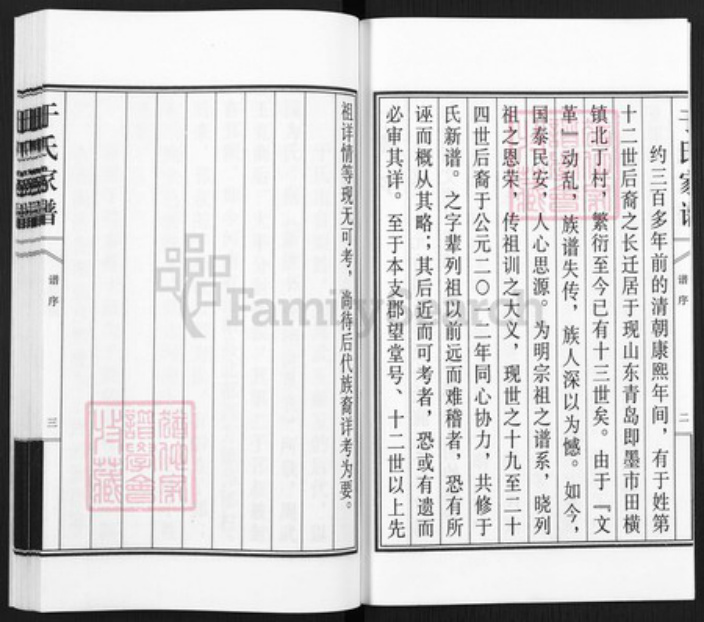 氏家谱
谱序
二
约三百多年前的清朝康熙年间，有于姓第
十二世后裔之长迁居于现山东青岛即墨市田横
镇北丁村，繁衍至今已有十三世矣。由于『文
革』动乱，族谱失传，族人深以为憾。如今，
国泰民安，人心思源。为明宗祖之谱系，晓列
祖之恩荣，传祖训之大义，现世之十九至二十
四世后裔于公元二〇一二年同心协力，共修于
氏新谱。之字辈列祖以前远而难稽者，恐有所
诬而概从其略；其后近而可考者，恐或有遗而
必审其详。至于本支郡望堂号、十二世以上先
祖详情等现无可考，尚待后代族裔详考为要。
于氏家谱
谱序
三
家
譜學會
收藏
FamilySearch